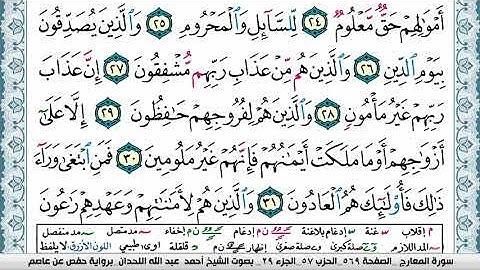 أَمْوَٰلِهِمْ حَقٌّ مَّعْلُومٌ ٢٤ لِّلسَّآئِلِ وَٱلْمَحْرُومِ ٢٥ وَٱلَّذِينَ يُصَدِّقُونَ
بِيَوْمِ ٱلدِّينِ ٢٦ وَٱلَّذِينَ هُم مِّنْ عَذَابِ رَبِّهِم مُّشْفِقُونَ ٢٧ إِنَّ عَذَابَ
رَبِّهِمْ غَيْرُ مَأْمُونٍ ٢٨ وَٱلَّذِينَ هُمْ لِفُرُوجِهِمْ حَٰفِظُونَ ٢٩ إِلَّا عَلَىٰٓ
أَزْوَٰجِهِمْ أَوْ مَا مَلَكَتْ أَيْمَٰنُهُمْ فَإِنَّهُمْ غَيْرُ مَلُومِينَ ٣٠ فَمَنِ ٱبْتَغَىٰ وَرَآءَ
ذَٰلِكَ فَأُو۟لَٰٓئِكَ هُمُ ٱلْعَادُونَ ٣١ وَٱلَّذِينَ هُمْ لِأَمَٰنَٰتِهِمْ وَعَهْدِهِمْ رَٰعُونَ
م إقلاب غنة إدغام بلاغنة إدغام إخفاء مد متصل مد منفصل
المد اللازم صلة كبرى صلة صغرى إظهار قلقلة طبيعي اللون الأزرق لا يلفظ
سورة المعارج _ الصفحة ٥٦٩_ الحزب ٥٧_ الجزء ٢٩ _ بصوت الشيخ أحمد عبد الله اللحدان _ برواية حفص عن عاصم